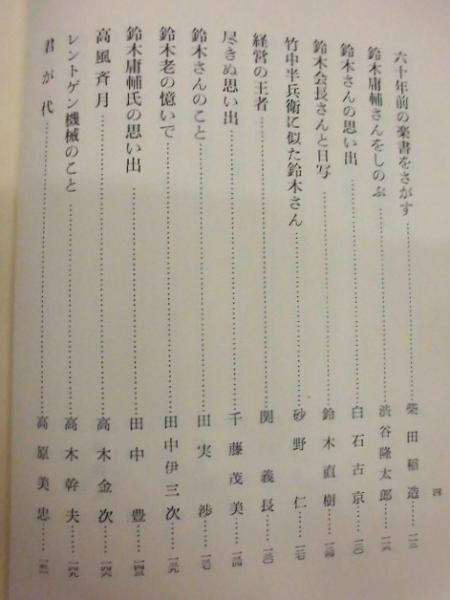 六十年前の楽書をさがす……柴田稲造……一一三
鈴木庸輔さんをしのぶ……渋谷隆太郎……一二六
鈴木さんの思い出……白石古京……一三〇
鈴木会長さんと日写……鈴木直樹……一三四
竹中半兵衛に似た鈴木さん……砂野仁……一二七
経営の王者……関義長……一三〇
尽きぬ思い出……千藤茂美……一三四
鈴木さんのこと……田実渉……一三七
鈴木老の憶いで……田中伊三次……一三九
鈴木庸輔氏の思い出……田中豊……一四三
高風斉月……高木金次……一四六
レントゲン機械のこと……高木幹夫……一四九
君が代……高原美忠……一五一
四